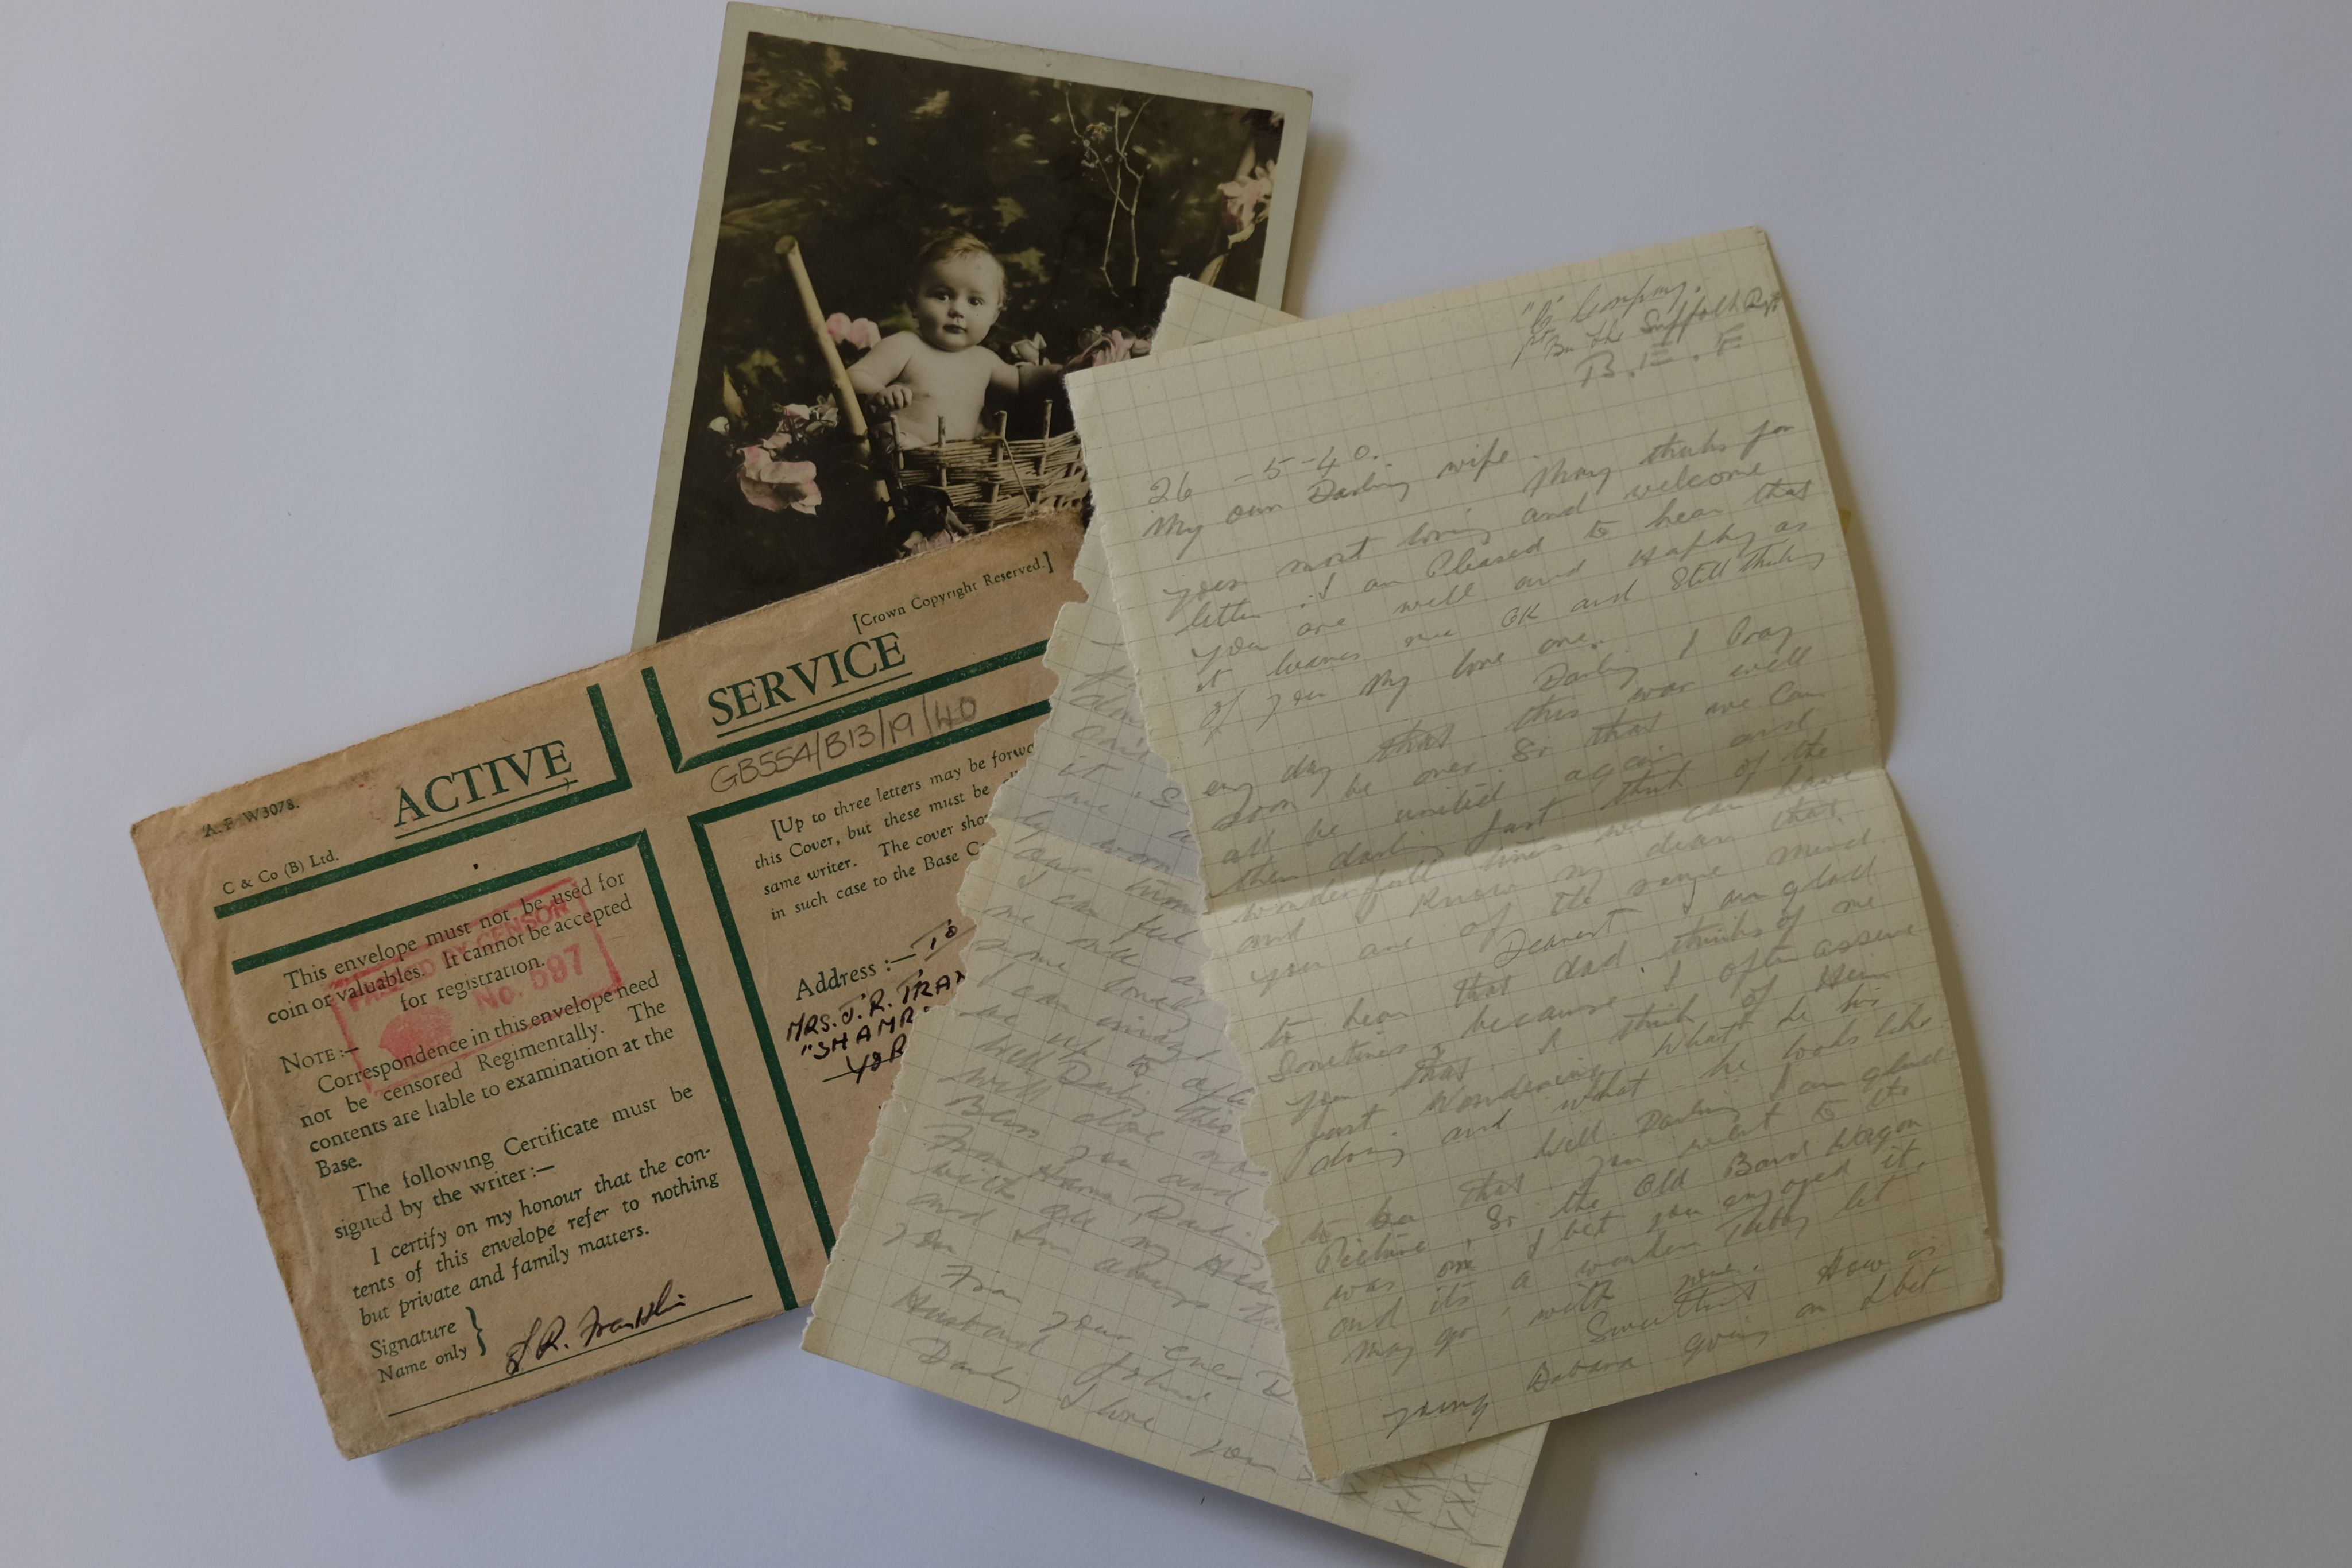 [Crown Copyright Reserved.]
A.F. W3078.
C & Co (B) Ltd.
ACTIVE
SERVICE
GB554/B13/19/40
This envelope must not be used for
coin or valuables. It cannot be accepted
for registration.
NOTE:—
Correspondence in this envelope need
not be censored Regimentally. The
contents are liable to examination at the
Base.
The following Certificate must be
signed by the writer:—
I certify on my honour that the con-
tents of this envelope refer to nothing
but private and family matters.
Signature
Name only
J R. Franklin
PASSED BY CENSOR
No. 597
[Up to three letters may be forw
this Cover, but these must be
same writer. The cover sho
in such case to the Base C
Address:— To
MRS. J. R. FRAN
"SHAMR
Company.
1st Bn The Suffolk Regt
B.E.F
26-5-40.
My own Darling wife.
Many thanks for
your most loving and welcome
letter. I am Pleased to hear that
you are well and Happy as
it leaves me OK and Still thinking
of you My love one.
Darling I Pray
every day that this war will
soon be over. So that we can
all be united again and
then darling just think of the
wonderfull times we can have
and I know my dear that
you are of the same mind.
Dearest I am glad
to hear that dad thinks of me
Sometimes, because I often assure
you that I think of Him
just wondering what he is
doing and what he looks like
Well Darling I am glad
that you went to the
Picture, So the Old Band Wagon
was on I bet you enjoyed it,
and its a wonder Tubby let
may go with you.
Sweetheart How is
young Babara going on I bet
it. S
I can
me
some lovely
I can imag
be up to
Well Darling this
will close
Bless you and
From Harm Darling
with all my Hea
and I'm always
you
From your ever
Husband
Darling I love you